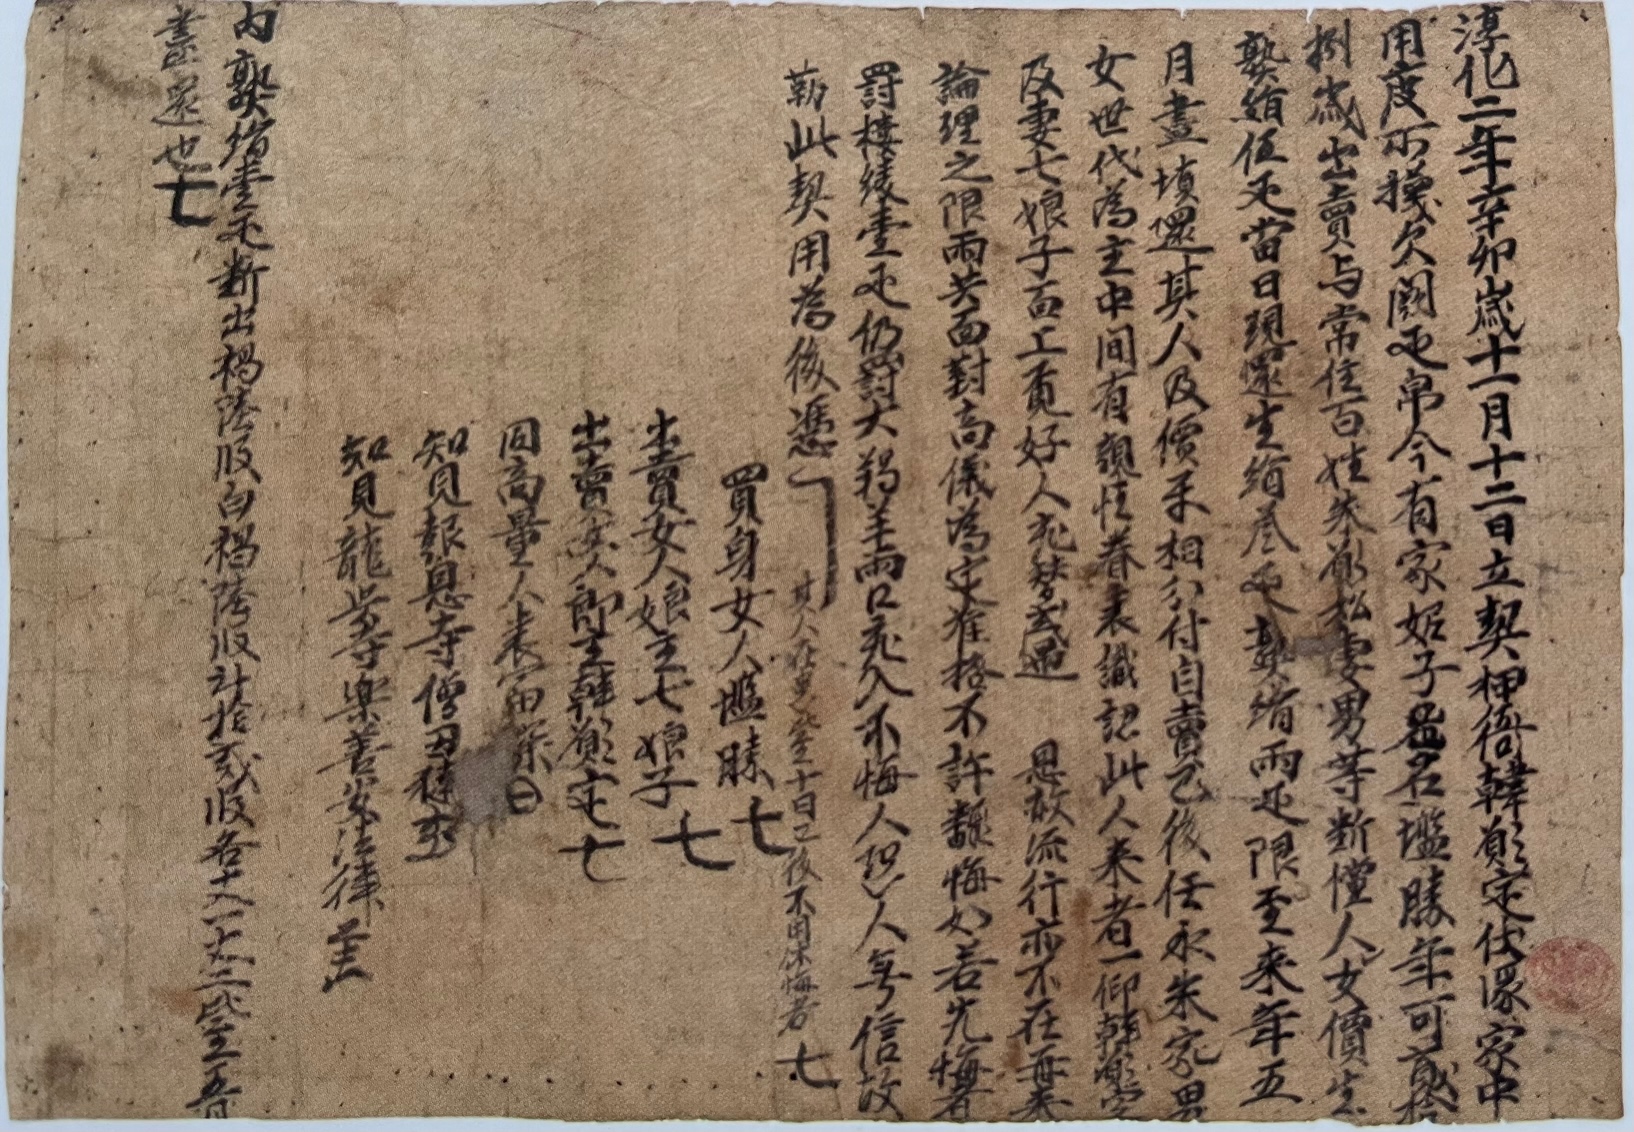 淳化二年辛卯歲十一月十二日立契押衙韓願定伏緣家中
用度不㨪欠闕疋帛今有家妮子𡖖名㙠勝年可貳拾
捌歲出賣与常住百姓朱願松妻男等斷儅人女價生
熟絹伍疋當日現還生絹叁疋熟絹兩疋限至來年五
月盡填還其人及價互相分付自賣已後任永朱家男
女世代為主中間有親情眷表識認此人來者一仰韓願定
及妻七娘子面上覓好人充替或遇 恩赦流行亦不在再來
論理之限兩共面對商儀為定准格不許翻悔如若先悔者
罰樓綾壹疋仍罰大羯羊兩口充入不悔人恐人無信故
勒此契用為後憑 其人在患比至十日已後不用休悔者七
買身女人㙠勝七
出賣女人娘主七娘子七
出賣女人郎主韓願定七
同商量人袁富深
知見報恩寺僧丑撻
知見龍興寺樂善安法律
內熟絹壹疋斷出褐陸段白褐陸段計拾貳段各丈一丈二比至五月
盡還也七